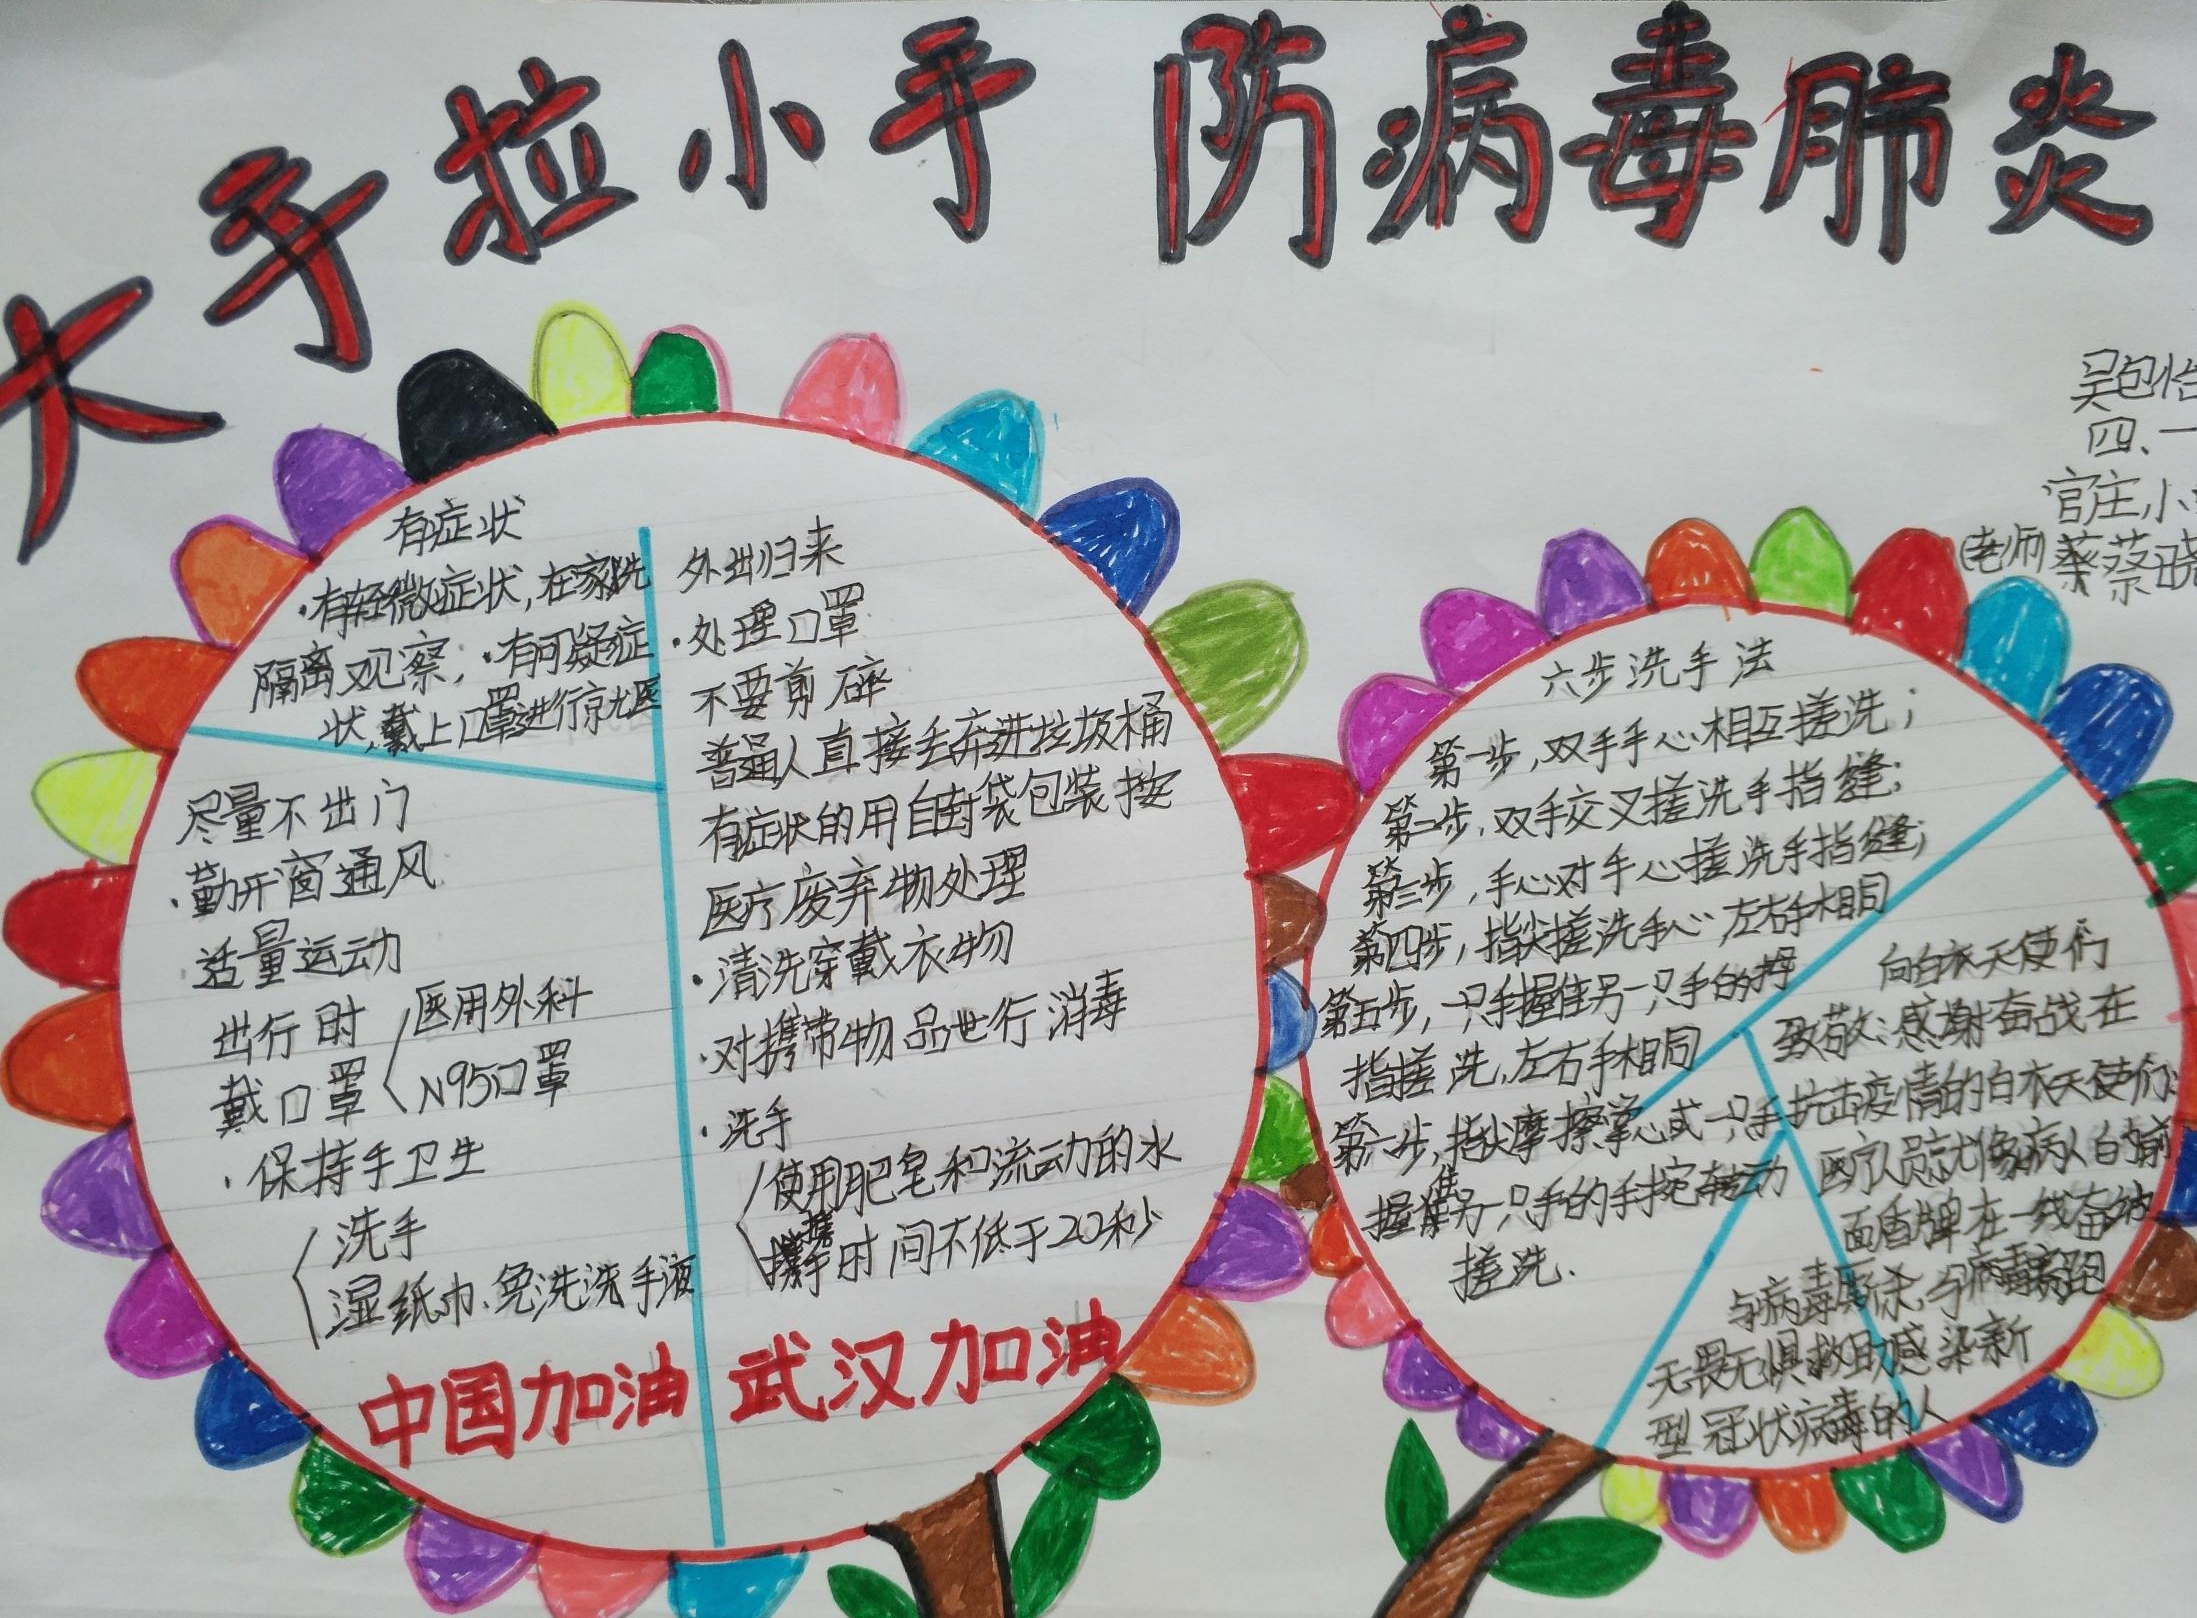 大手拉小手 防病毒肺炎
吴包怡
四、一
官庄小
(老师)蔡蔡晓
有症状
·有轻微症状,在家洗
隔离观察;·有可疑症
状,戴上口罩进行就医
尽量不出门
·勤开窗通风
·适量运动
出行时
戴口罩
医用外科
N95口罩
·保持手卫生
洗手
湿纸巾、免洗洗手液
中国加油
外出归来
·处理口罩
不要剪碎
普通人直接丢弃进垃圾桶
有症状的用自封袋包装按
医疗废弃物处理
·清洗穿戴衣物
·对携带物品进行消毒
·洗手
使用肥皂和流动的水
携手时间不低于20秒
武汉加油
六步洗手法
第一步,双手手心相互搓洗;
第二步,双手交叉搓洗手指缝;
第三步,手心对手心搓洗手指缝;
第四步,指尖搓洗手心,左右手相同
第五步,一只手握住另一只手的拇
指搓洗,左右手相同
第六步,指尖摩擦掌心或一只手
握住另一只手的手挖转动
搓洗.
向白衣天使们
致敬:感谢奋战在
抗击疫情的白衣天使们:
医疗人员就像病人白的前
面盾牌在一线奋战
与病毒厮杀,与病毒赛跑
无畏无惧救助感染新
型冠状病毒的人